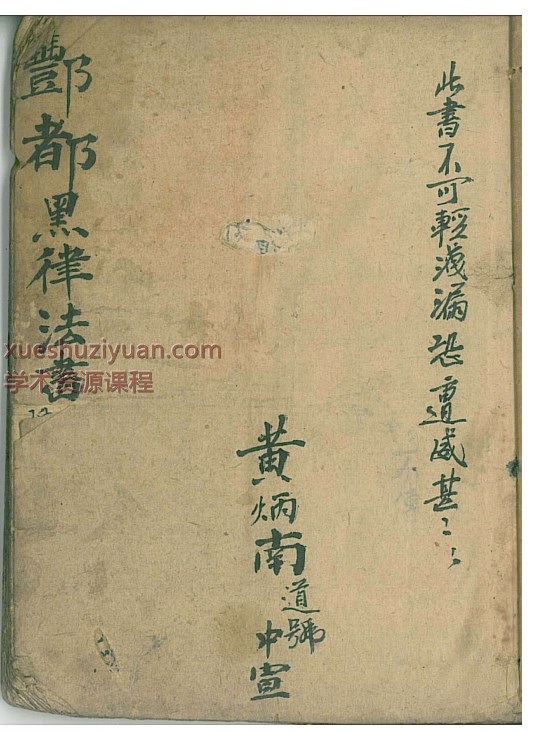 此書不可輕洩漏恐遭咸甚〻
黄炳南道號中宣
酆都黑律法書
xueshuziyuan.com
学术资源课程